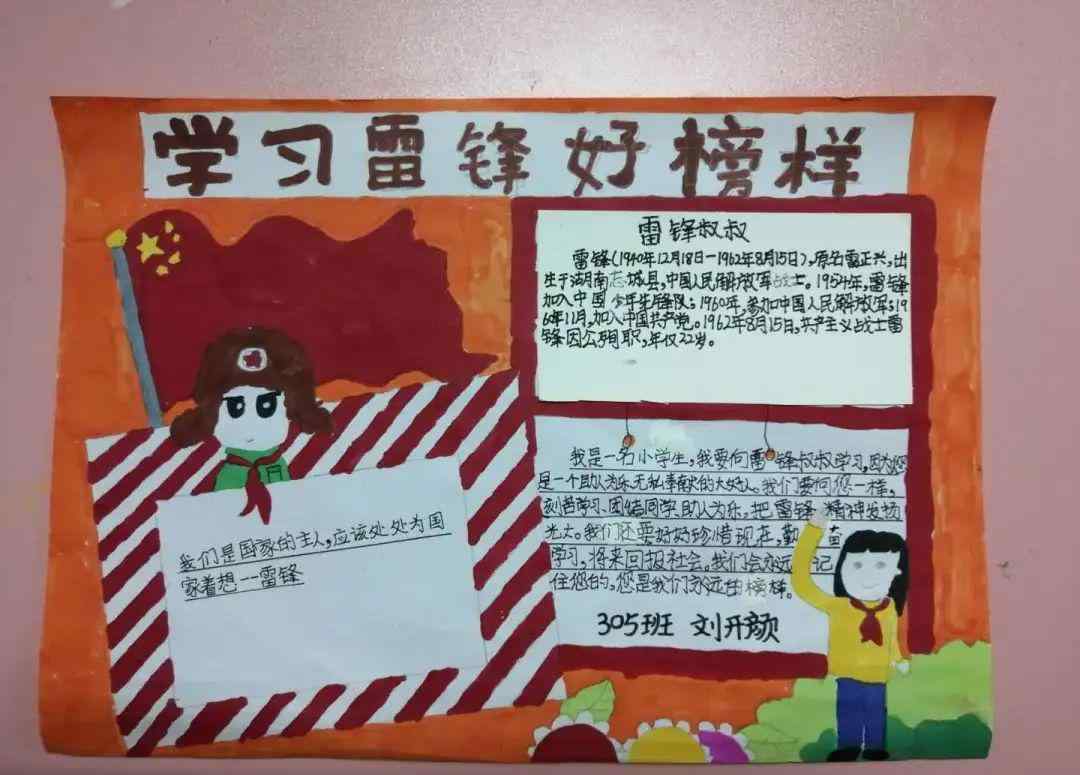 学习雷锋好榜样
雷锋叔叔
雷锋(1940年12月18日-1962年8月15日),原名雷正兴,出
生于湖南志城县,中国人民解放军战士。1954年,雷锋
加入中国少年先锋队;1960年,参加中国人民解放军;196
0年11月,加入中国共产党。1962年8月15日,共产主义战士雷
锋因公殉职,年仅22岁。
我们是国家的主人,应该处处为国
家着想--雷锋
我是一名小学生,我要向雷锋叔叔学习,因为您
是一个助人为乐无私奉献的大好人。我们要向您一样,
刻苦学习、团结同学、助人为乐,把雷锋精神发扬
光大。我们还要好好珍惜现在,勤 苗
学习,将来回报社会。我们会永远 记
住您的,您是我们永远的榜样。
305班 刘开颜